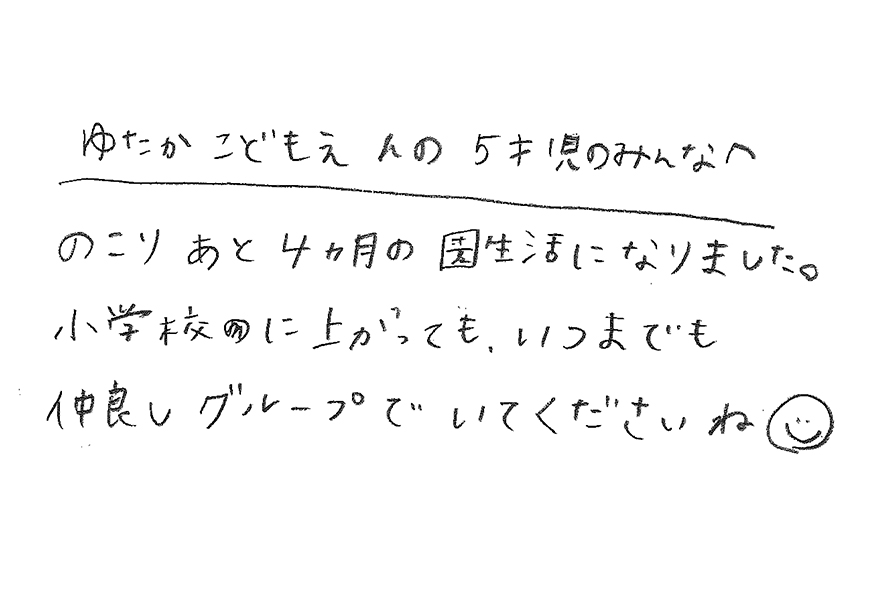 ゆたかこどもえんの5才児のみんなへ
のこりあと4ヵ月の園生活になりました。
小学校に上がっても、いつまでも
仲良しグループでいてくださいね